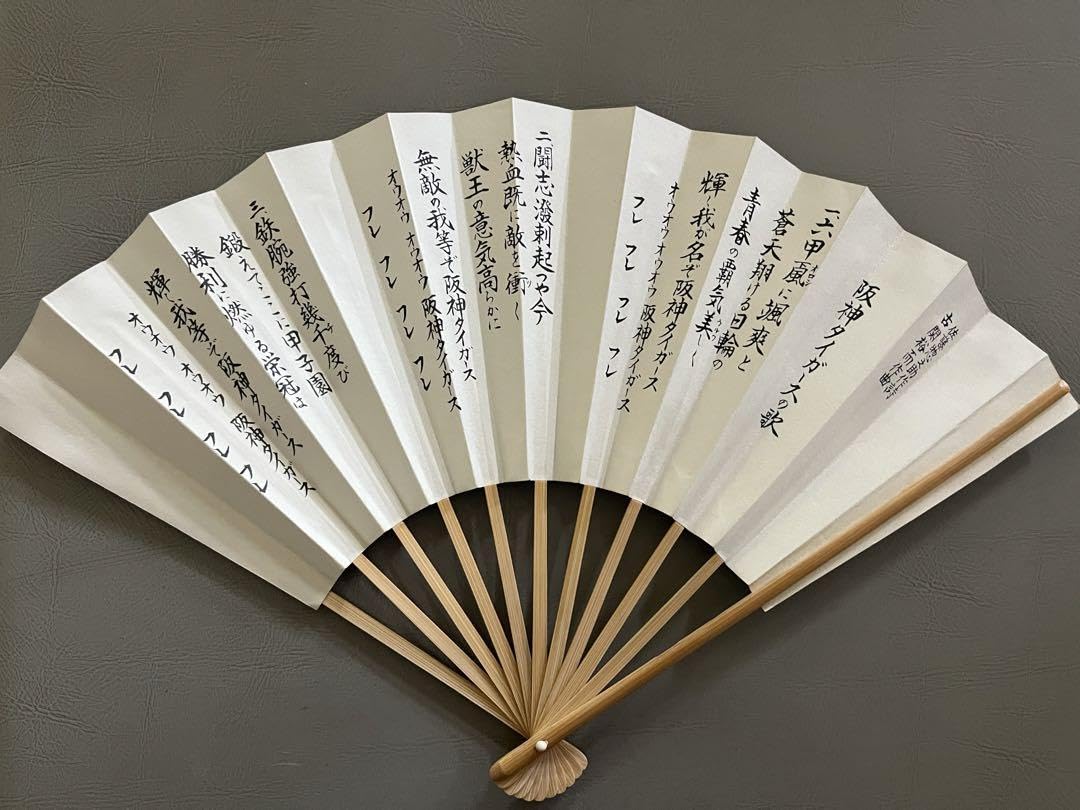 阪神タイガースの歌
佐藤惣之助作詩
古関裕而作曲
一六甲颪に颯爽と
蒼天翔ける日輪の
青春の覇気美しく
輝く我が名ぞ阪神タイガース
オウオウオウオウ 阪神タイガース
フレ フレ フレ フレ
二闘志溌剌起つや今
熱血既に敵を衝く
獣王の意気高らかに
無敵の我等ぞ阪神タイガース
オウオウ オウオウ 阪神タイガース
フレ フレ フレ フレ
三鉄腕強打幾千度び
鍛えてここに甲子園
勝利に燃ゆる栄冠は
輝く我等ぞ阪神タイガース
オウオウ オウオウ 阪神タイガース
フレ フレ フレ フレ